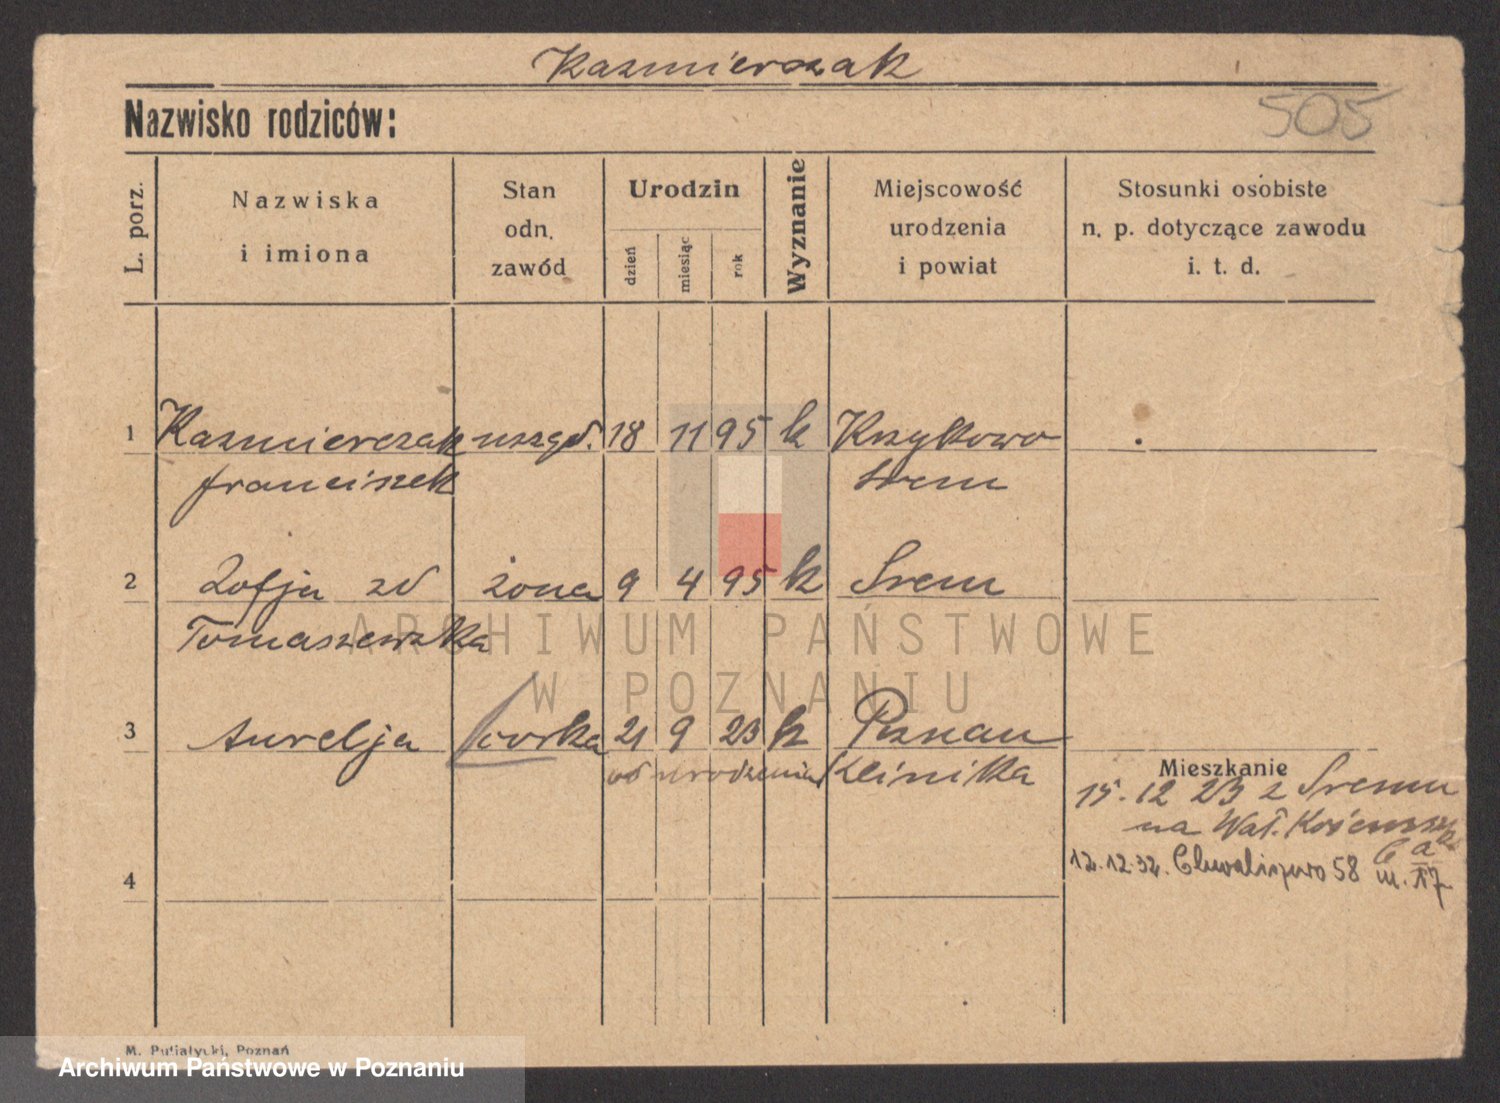 Kazmierczak
Nazwisko rodziców:
505
L. porz.
Nazwiska
i imiona
Stan
odn.
zawód
Urodzin
dzień
miesiąc
rok
Wyznanie
Miejscowość
urodzenia
i powiat
Stosunki osobiste
n. p. dotyczące zawodu
i. t. d.
1 Kazmierczak 18 11 95 k
Franciszek Srem
2 Zofja zd żona 9 4 95 k Srem
Tomaszewska
3 Aurelja córka 21 9 23 k Poznan
od urodzenia Klinika
Mieszkanie
15. 12 23 z Sremu
na Wał.
12.12.32. Chwaliszewo 58 m. 17
4
M. Putiatycki, Poznań
ARCHIWUM PAŃSTWOWE
W POZNANIU
Archiwum Państwowe w Poznaniu